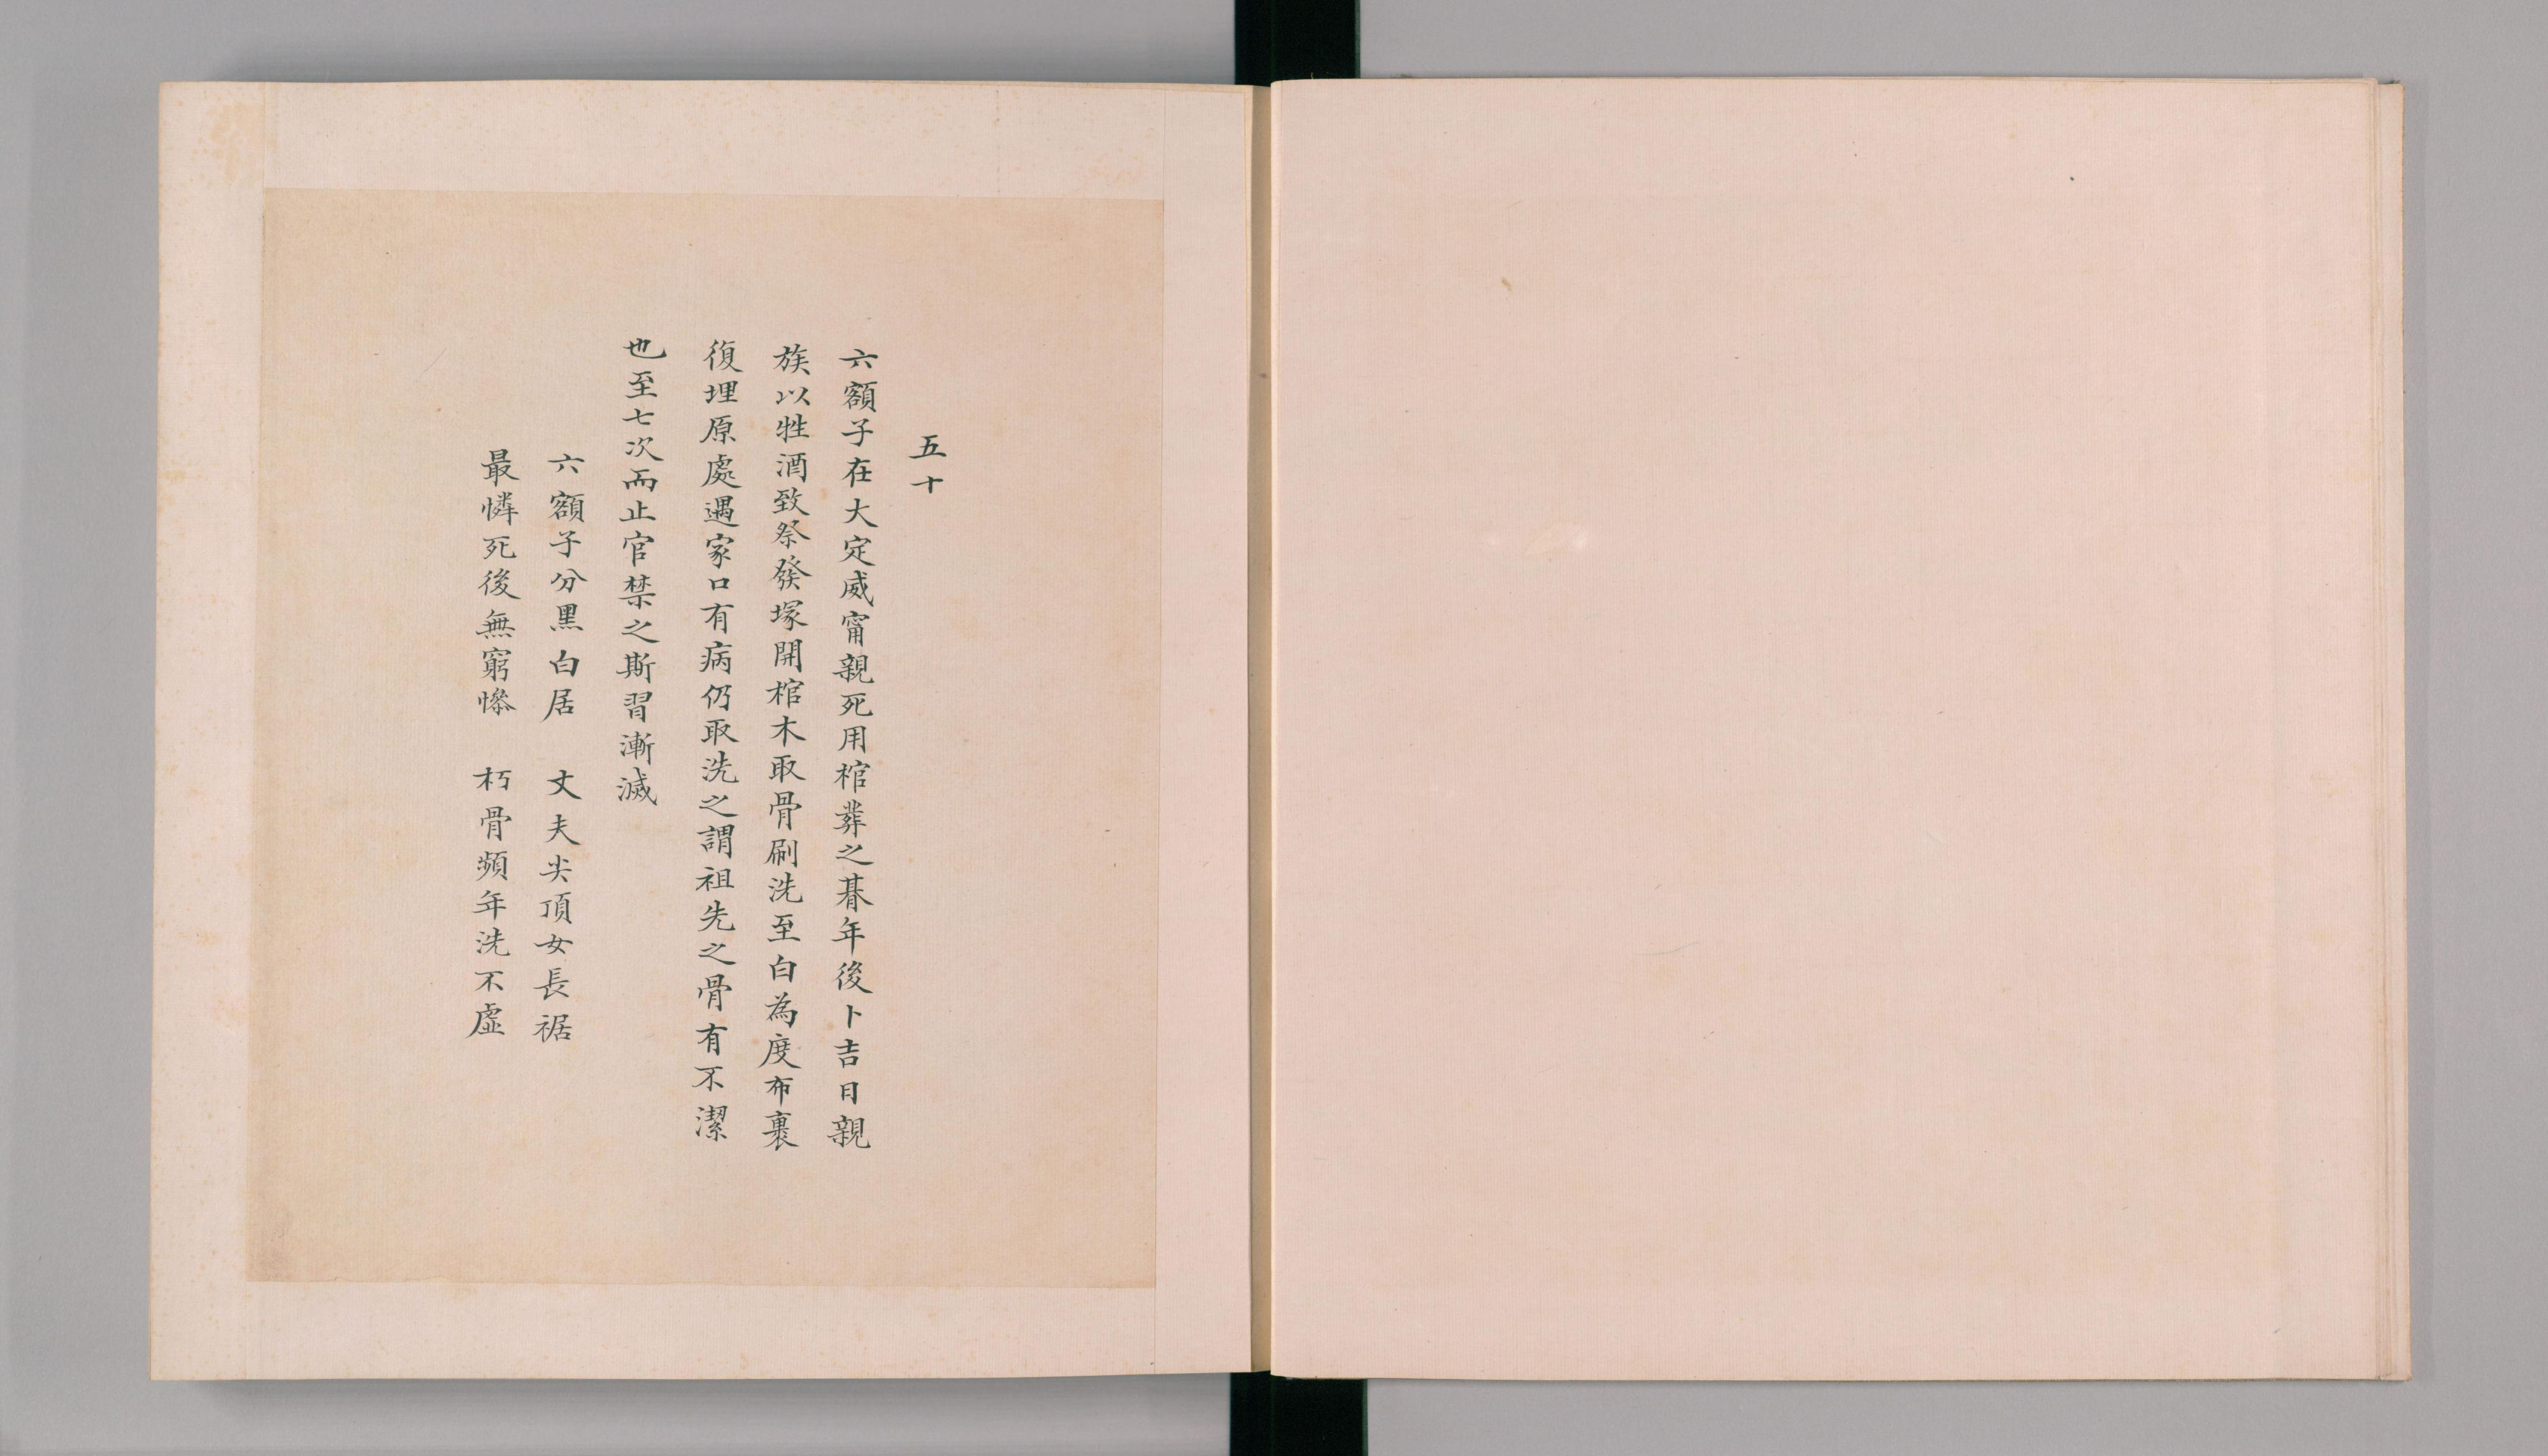 五十
六額子在大定威甯親死用棺葬之朞年後卜吉日親
族以牲酒致祭發塚開棺木取骨刷洗至白為度布裹
復埋原處遇家口有病仍取洗之謂祖先之骨有不潔
也至七次而止官禁之斯習漸滅
六額子分黑白居　丈夫尖頂女長裾
最憐死後無窮慘　朽骨頻年洗不虛